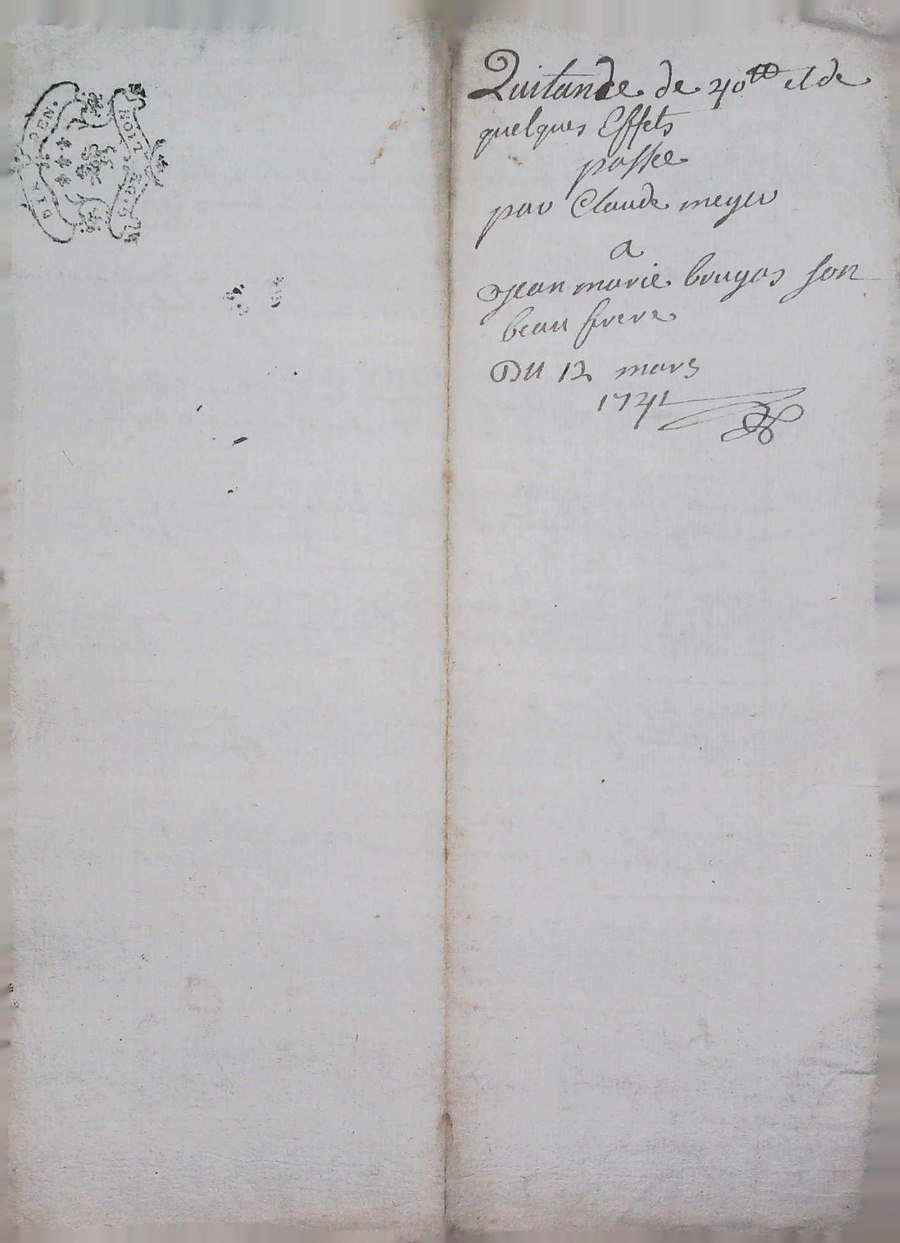 HUIT
DEN.
Quitance de 40tt et de
quelques Effets
passee
par Claude meyer
a
Jean marie bruyas son
beau frere
Du 12 mars
1741